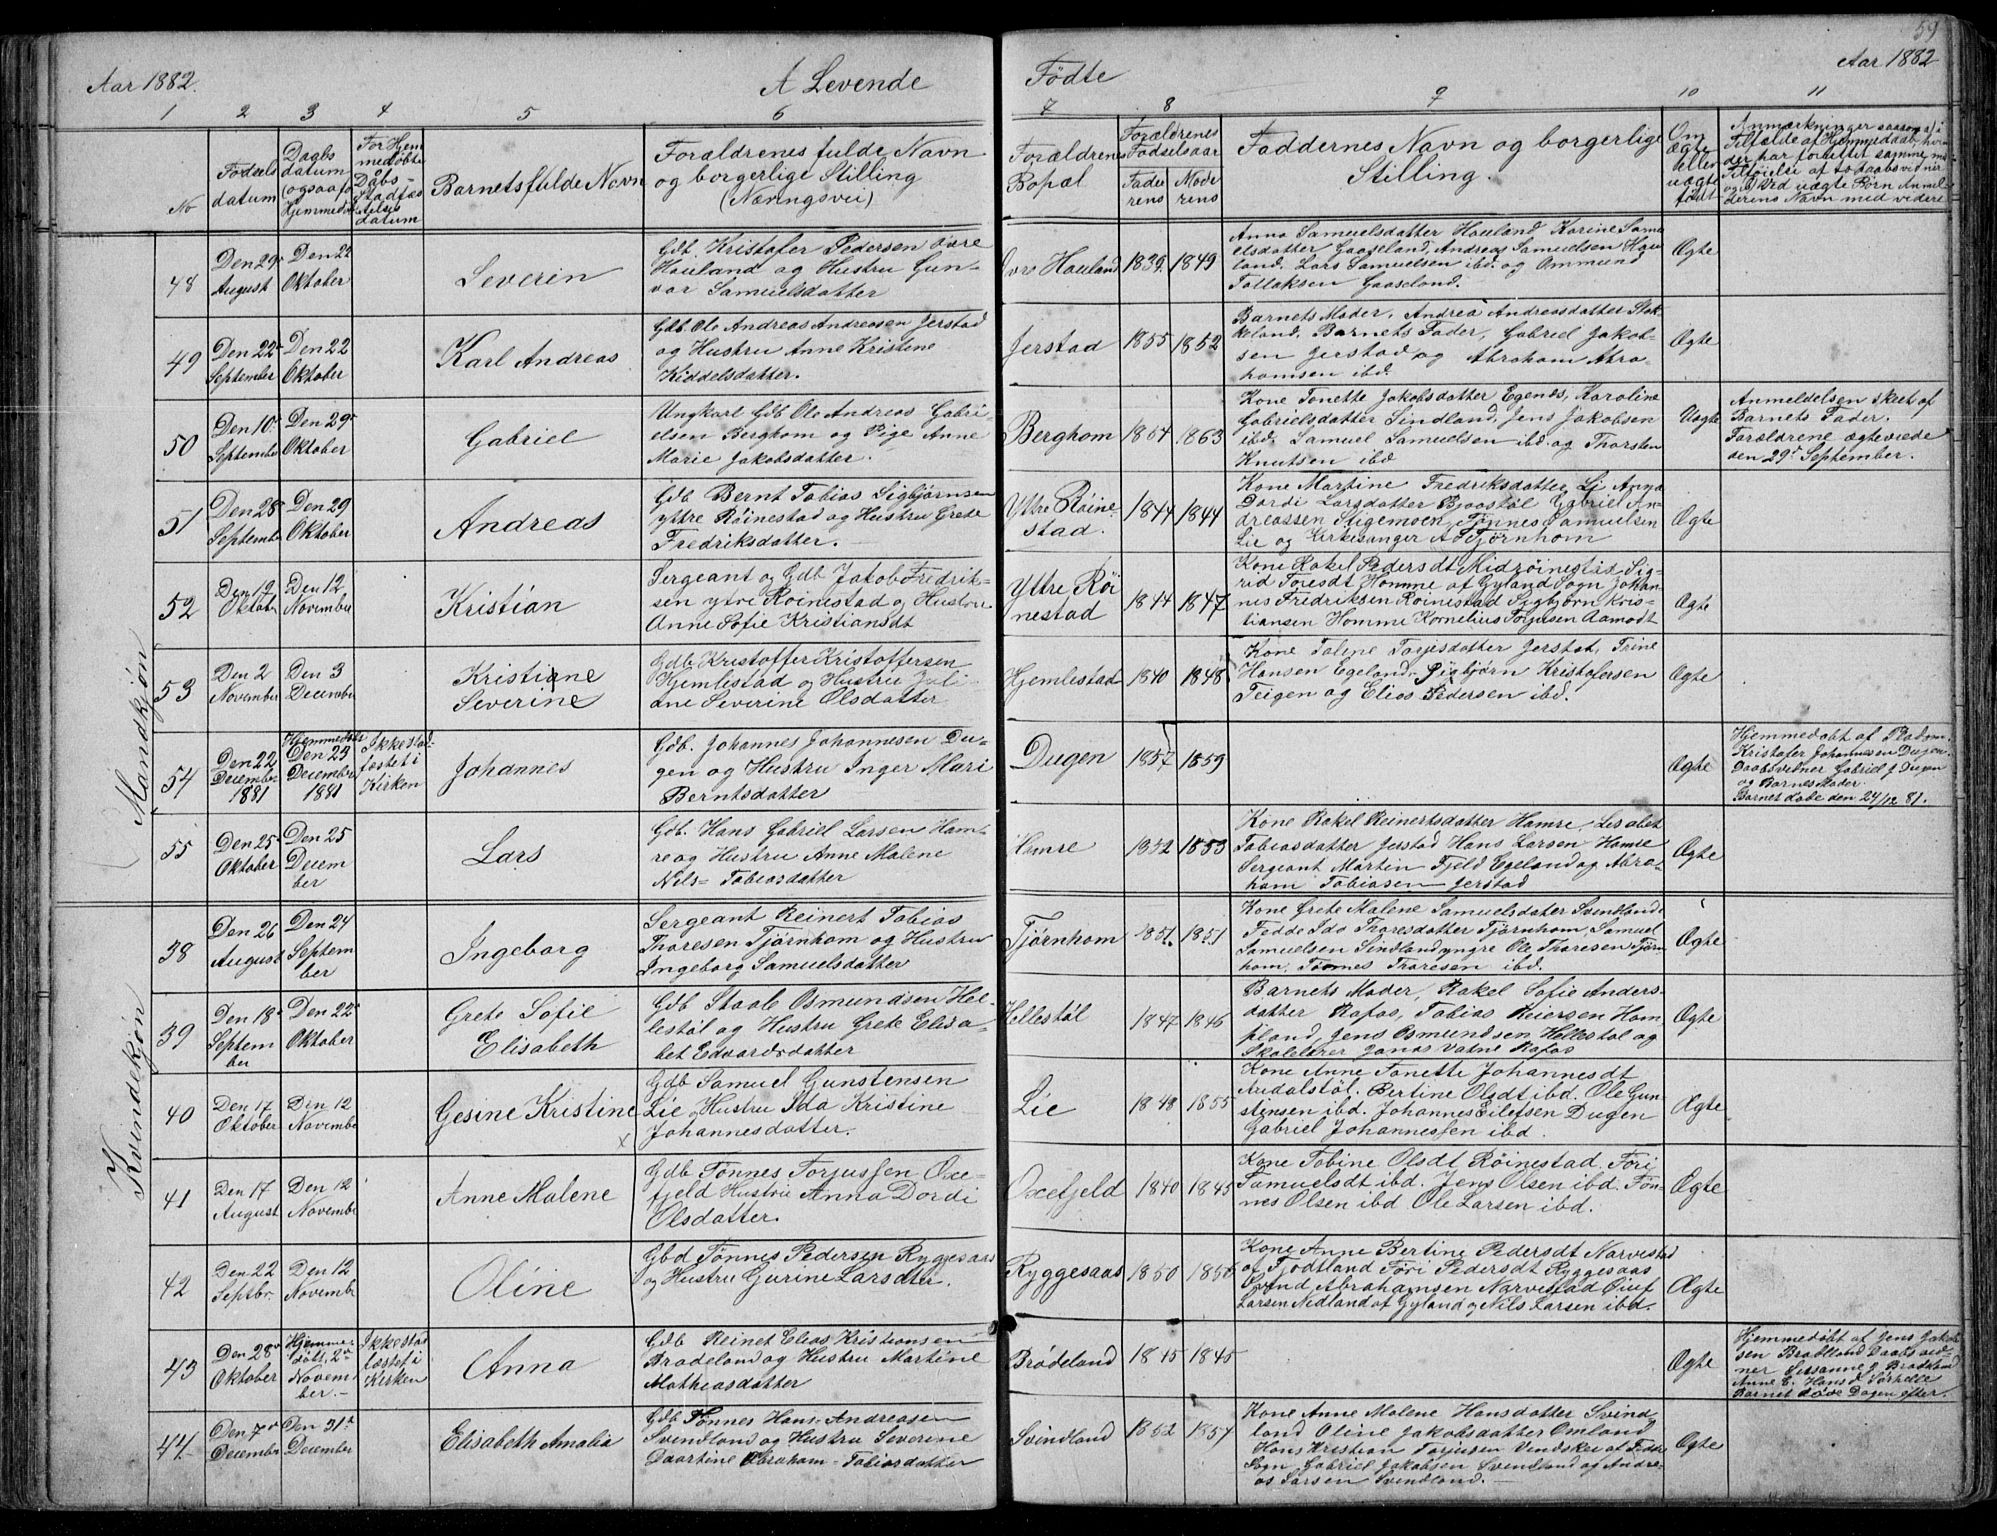 59
Aar 1882.
A Levende
Fødte
Aar 1882
1 2 3 4 5 6 7 8 9 10 11
No
Fødsels
datum
Daabs
datum
(ogsaa for
Hjemmedøbte
For Hjem
medøbte
Daabs-
Stadfæs
telses
datum
Barnets fulde Navn
Forældrenes fulde Navn
og borgerlige Stilling
(Næringsvei)
Forældrenes
Bopæl
Forældrenes
Fødselsaar
Fade
rens
Mode
rens
Faddernes Navn og borgerlige
Stilling.
Om
ægte
eller
uægte
født
Mandkjøn
48
Den 29
August
Den 22
Oktober
Severin
Gdb. Kristofer Pedersen øvre
Houland og Hustru Gun-
vor Samuelsdatter
Øvre Houland
1839
1849
Anna Samuelsdatter Houland Karine Samu
elsdatter Gaaseland, Andreas Samuelsen Hou
land. Lars Samuelsen ibd. og Ommund
Tollaksen Gaaseland.
Ægte
49
Den 22
September
Den 22
Oktober
Karl Andreas
Gdb Ole Andreas Andreasen Jerstad
og Hustru Anne Kristine
Kiddelsdatter.
Jerstad
1855
1852
Barnets Moder, Andrea Andreasdatter Stok
keland. Barnets Fader, Gabriel Jakob-
sen Jerstad og Abraham Abra
hamsen ibd.
Ægte
50
Den 10
September
Den 29
Oktober
Gabriel
Ungkarl Gdb Ole Andreas Gabri
elsen Berghom og Pige Anne
Marie Jakobsdatter.
Berghom
1854
1863
Kone Tonette Jakobsdatter Egenes, Karoline
Gabrielsdatter Sindland, Jens Jakobsen
ibd. Samuel Samuelsen ibd. og Thorsten
Knutsen ibd
Uægte
Anmeldelsen skeet af
Barnets Fader.
Forældrene ægteviede
den 29 September.
51
Den 28
September
Den 29
Oktober
Andreas
Gdb Bernt Tobias Sigbjørnsen
ytre Røinestad og Hustru Grete
Fredriksdatter.
Yttre Røine
stad.
1844
1844
Kone Martine Fredriksdatter Li Anna
Dordi Larsdatter Bjaastøl Gabriel An-
dreassen Stigemoen, Tønnes Samuelsen
Lie og Kirkesanger A Tjørnhom
Ægte
52
Den 19
Oktober
Den 12
November
Kristian
Sergeant og Gdb Jakob Fredrik-
sen ytre Røinestad og Hustru
Anne Sofie Kristiansdt
Yttre Røi
nestad
1844
1847
Kone Rakel Pedersdt Midrøinestad, Sig-
rid Toresdt Homme af Gyland Sogn Johan-
nes Fredriksen Røinestad Sigbjørn Kris-
tiansen Homme Kornelius Torjusen Aamodt
Ægte
53
Den 2
November
Den 3
December
Kristiane
Severine
Gdb Kristoffer Kristoffersen
Hjemlestad og Hustru Juli
ane Severine Olsdatter
Hjemlestad
1840
1848
Kone Tolene Torjesdatter Jerstat, Trine
Hansen Egeland. Sigbjørn Kristofersen
Teigen og Elias Pedersen ibd.
Ægte
54
Den 22
December
1881
Hjemmedøbt
Den 23
December
1881
Ikke stad-
fæstet i
Kirken
Johannes
Gdb. Johannes Johannesen Du-
gen og Hustru Inger Mari
Berntsdatter
Dugen
1857
1859
Ægte
Kristofer Johannesen Dugen
Daabsvidner Gabriel J Dugen
og Barnes Moder
Barnet døde den 24/12 81.
55
Den 25
Oktober
Den 25
Decem
ber
Lars
Gdb. Hans Gabriel Larsen Ham-
re og Hustru Anne Malene
Nils- Tobiasdatter
Hamre
1852
1853
Kone Rakel Reinertsdatter Hamre, Lisabet
Tobiasdatter Jerstad Hans Larsen Hamre
Sergeant Martin Fjeld Egeland og Abra-
ham Tobiasen Jerstad
Ægte
Kvindekjøn
38
Den 26
August
Den 24
Septem
ber
Ingeborg
Sergeant Reinert Tobias
Thoresen Tjørnhom og Hustru
Ingeborg Samuelsdatter
Tjørnhom
1851
1851
Kone Grete Malene Samuelsdater Svindland
Fedde Ida Thoresdatter Tjørnhom, Samuel
Samuelsen Sindland yngre Ole Thoresen Tjørn
hom, Tønnes Thoresen ibd.
Ægte
39
Den 18
Septem
ber
Den 22
Oktober
Grete Sofie
Elisabeth
Gdb Staale Osmundsen Hel-
lestøl og Hustru Grete Elisa-
bet Edvardsdatter
Hellestøl
1847
1846
Barnets Moder, Rakel Sofie Anders-
datter Rafos, Tobias Reiersen Hom
pland, Jens Osmundsen Hellestøl og
Skolelærer Jonas Vatne Rafos
Ægte
40
Den 17
Oktober
Den 12
November
Gesine Kristine
x
Gdb Samuel Gunstensen
Lie og Hustru Ida Kristine
Johannesdatter.
Lie
1848
1855
Kone Anne Tonette Johannesdt
Audalstøl. Bertine Olsdt ibd. Ole Gun
stensen ibd. Johannes Eilefsen Dugen
Gabriel Johannessen ibd.
Ægte
41
Den 17
August
Den 12
November
Anne Malene
Gdb Tønnes Torjussen Oxe-
fjeld Hustru Anna Dordi
Olsdatter.
Oxefjeld
1840
1845
Kone Tobine Olsdt Røinestad. Tori
Samuelsdt ibd. Jens Olsen ibd. Tøn-
nes Olsen ibd Ole Larsen ibd.
Ægte
42
Den 22
Septbr.
Den 12
November
Oline
Gbd Tønnes Pedersen Ryggesaas
og Hustru Gurine Larsdtr.
Ryggesaas
1850
1850
Kone Anne Bertine Pedersdt Narvestad
af Fjodtland Tori Pedersdt Ryggesaas
Svend Abrahamsen Narvestad Eiuf
Larsen Nedland af Gyland og Nils Larsen ibd.
Ægte
43
Den 28
Oktober
Hjemme
døbt, 2
Novem
ber.-
Ikke stad
fæstet i
Kirken
Anna
Gdb Reinet Elias Kristiansen
Brødeland og Hustru Martine
Mathiasdatter
Brødeland
1845
1845
Ægte
Hjemmedøbt af Jens Jakob
sen Brødland Daabsvid-
ner Susanne J Brødland
Anne E. Hansd Sørhelle
Barnet døde Dagen efter.
44.
Den 7
December
Den 31
December
Elisabeth Amalia
Gdb Tønnes Hans-Andreasen
Svendland og Hustru Severine
Daartine Abraham-Tobiasdatter
Svindland
1852
1857
Kone Anne Malene Hansdatter Svind
land Oline Jakobsdatter Omland
Hans Kristian Torjusen Vindskei af Fede
Sogn. Gabriel Jakobsen Svendland og Andre-
as Larsen Svendland.
Ægte